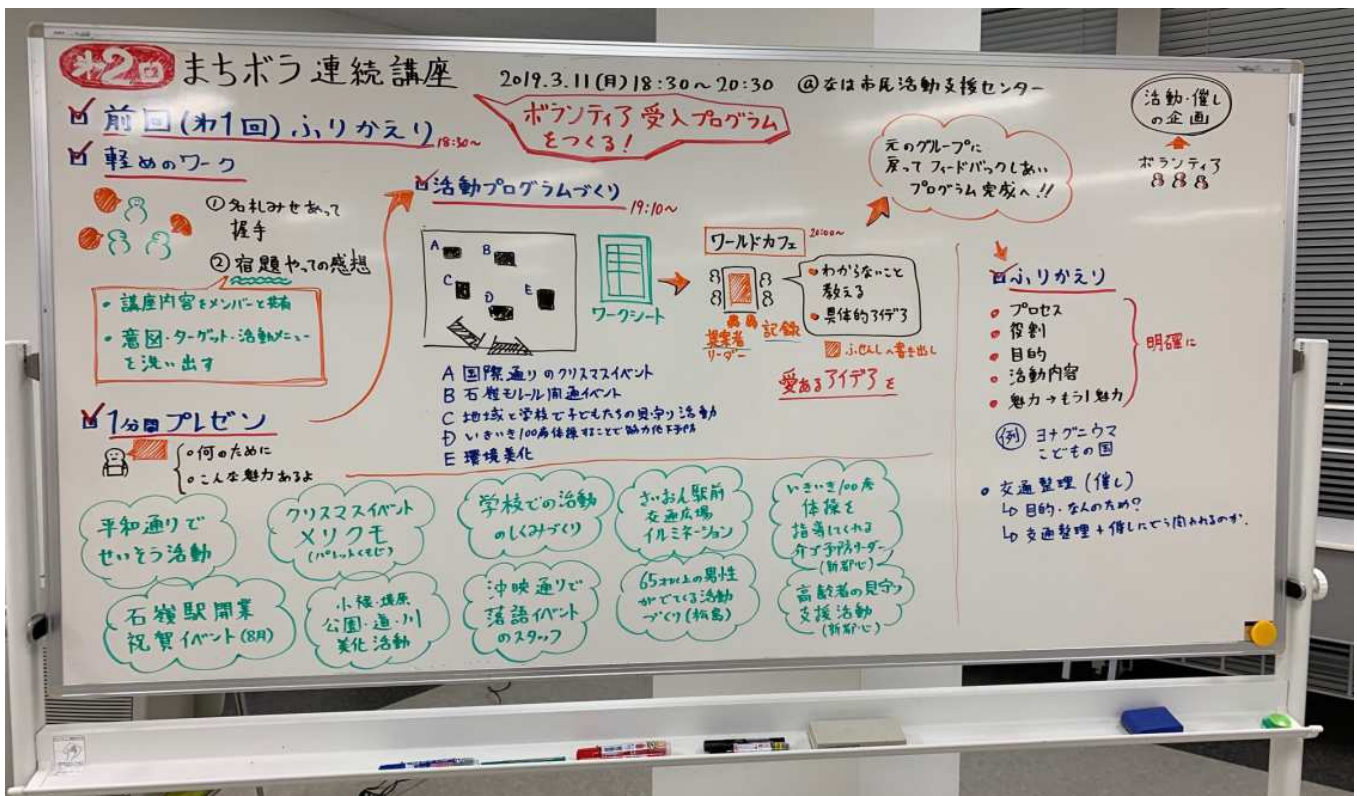 第2回 まちボラ連続講座 2019.3.11(月)18:30〜20:30 @なは市民活動支援センター
ボランティア受入プログラム
をつくる!
前回(第1回)ふりかえり 18:30〜
軽めのワーク
①名札みせあって
握手
②宿題やっての感想
・講座内容をメンバーと共有
・意図・ターゲット・活動メニュー
を洗い出す
1分間プレゼン
○何のために
○こんな魅力あるよ
活動プログラムづくり 19:10〜
A
B
C
D
E
ワークシート
A 国際通りのクリスマスイベント
B 石嶺モノレール開通イベント
C 地域と学校で子どもたちの見守り活動
D いきいき100歳体操することで筋力低下予防
E 環境美化
ワールドカフェ 20:00〜
・わからないこと
教える
・具体的アイデア
提案者
リーダー
記録
ふせんしへ書き出し
愛あるアイデアを
元のグループに
戻ってフィードバックしあい
プログラム完成へ!!
活動・催し
の企画
ボランティア
ふりかえり
・プロセス
・役割
・目的
・活動内容
・魅力→もう1魅力
明確に
例 ヨナグニウマ
こどもの国
・交通整理(催し)
↳目的・なんのため?
↳交通整理+催しにどう関われるのか.
平和通りで
せいそう活動
クリスマスイベント
メリクモ
(パレットくもじ)
学校での活動
のしくみづくり
さいおん駅前
交通広場
イルミネーション
いきいき100歳
体操を
指導してくれる
介ゴ予防リーダー
(新都心)
石嶺駅開業
祝賀イベント(8月)
小禄・壕原
公園・道・川
美化活動
沖映通りで
落語イベント
のスタッフ
65才以上の男性
がでてくる活動
づくり(松島)
高齢者の見守り
支援活動
(新都心)